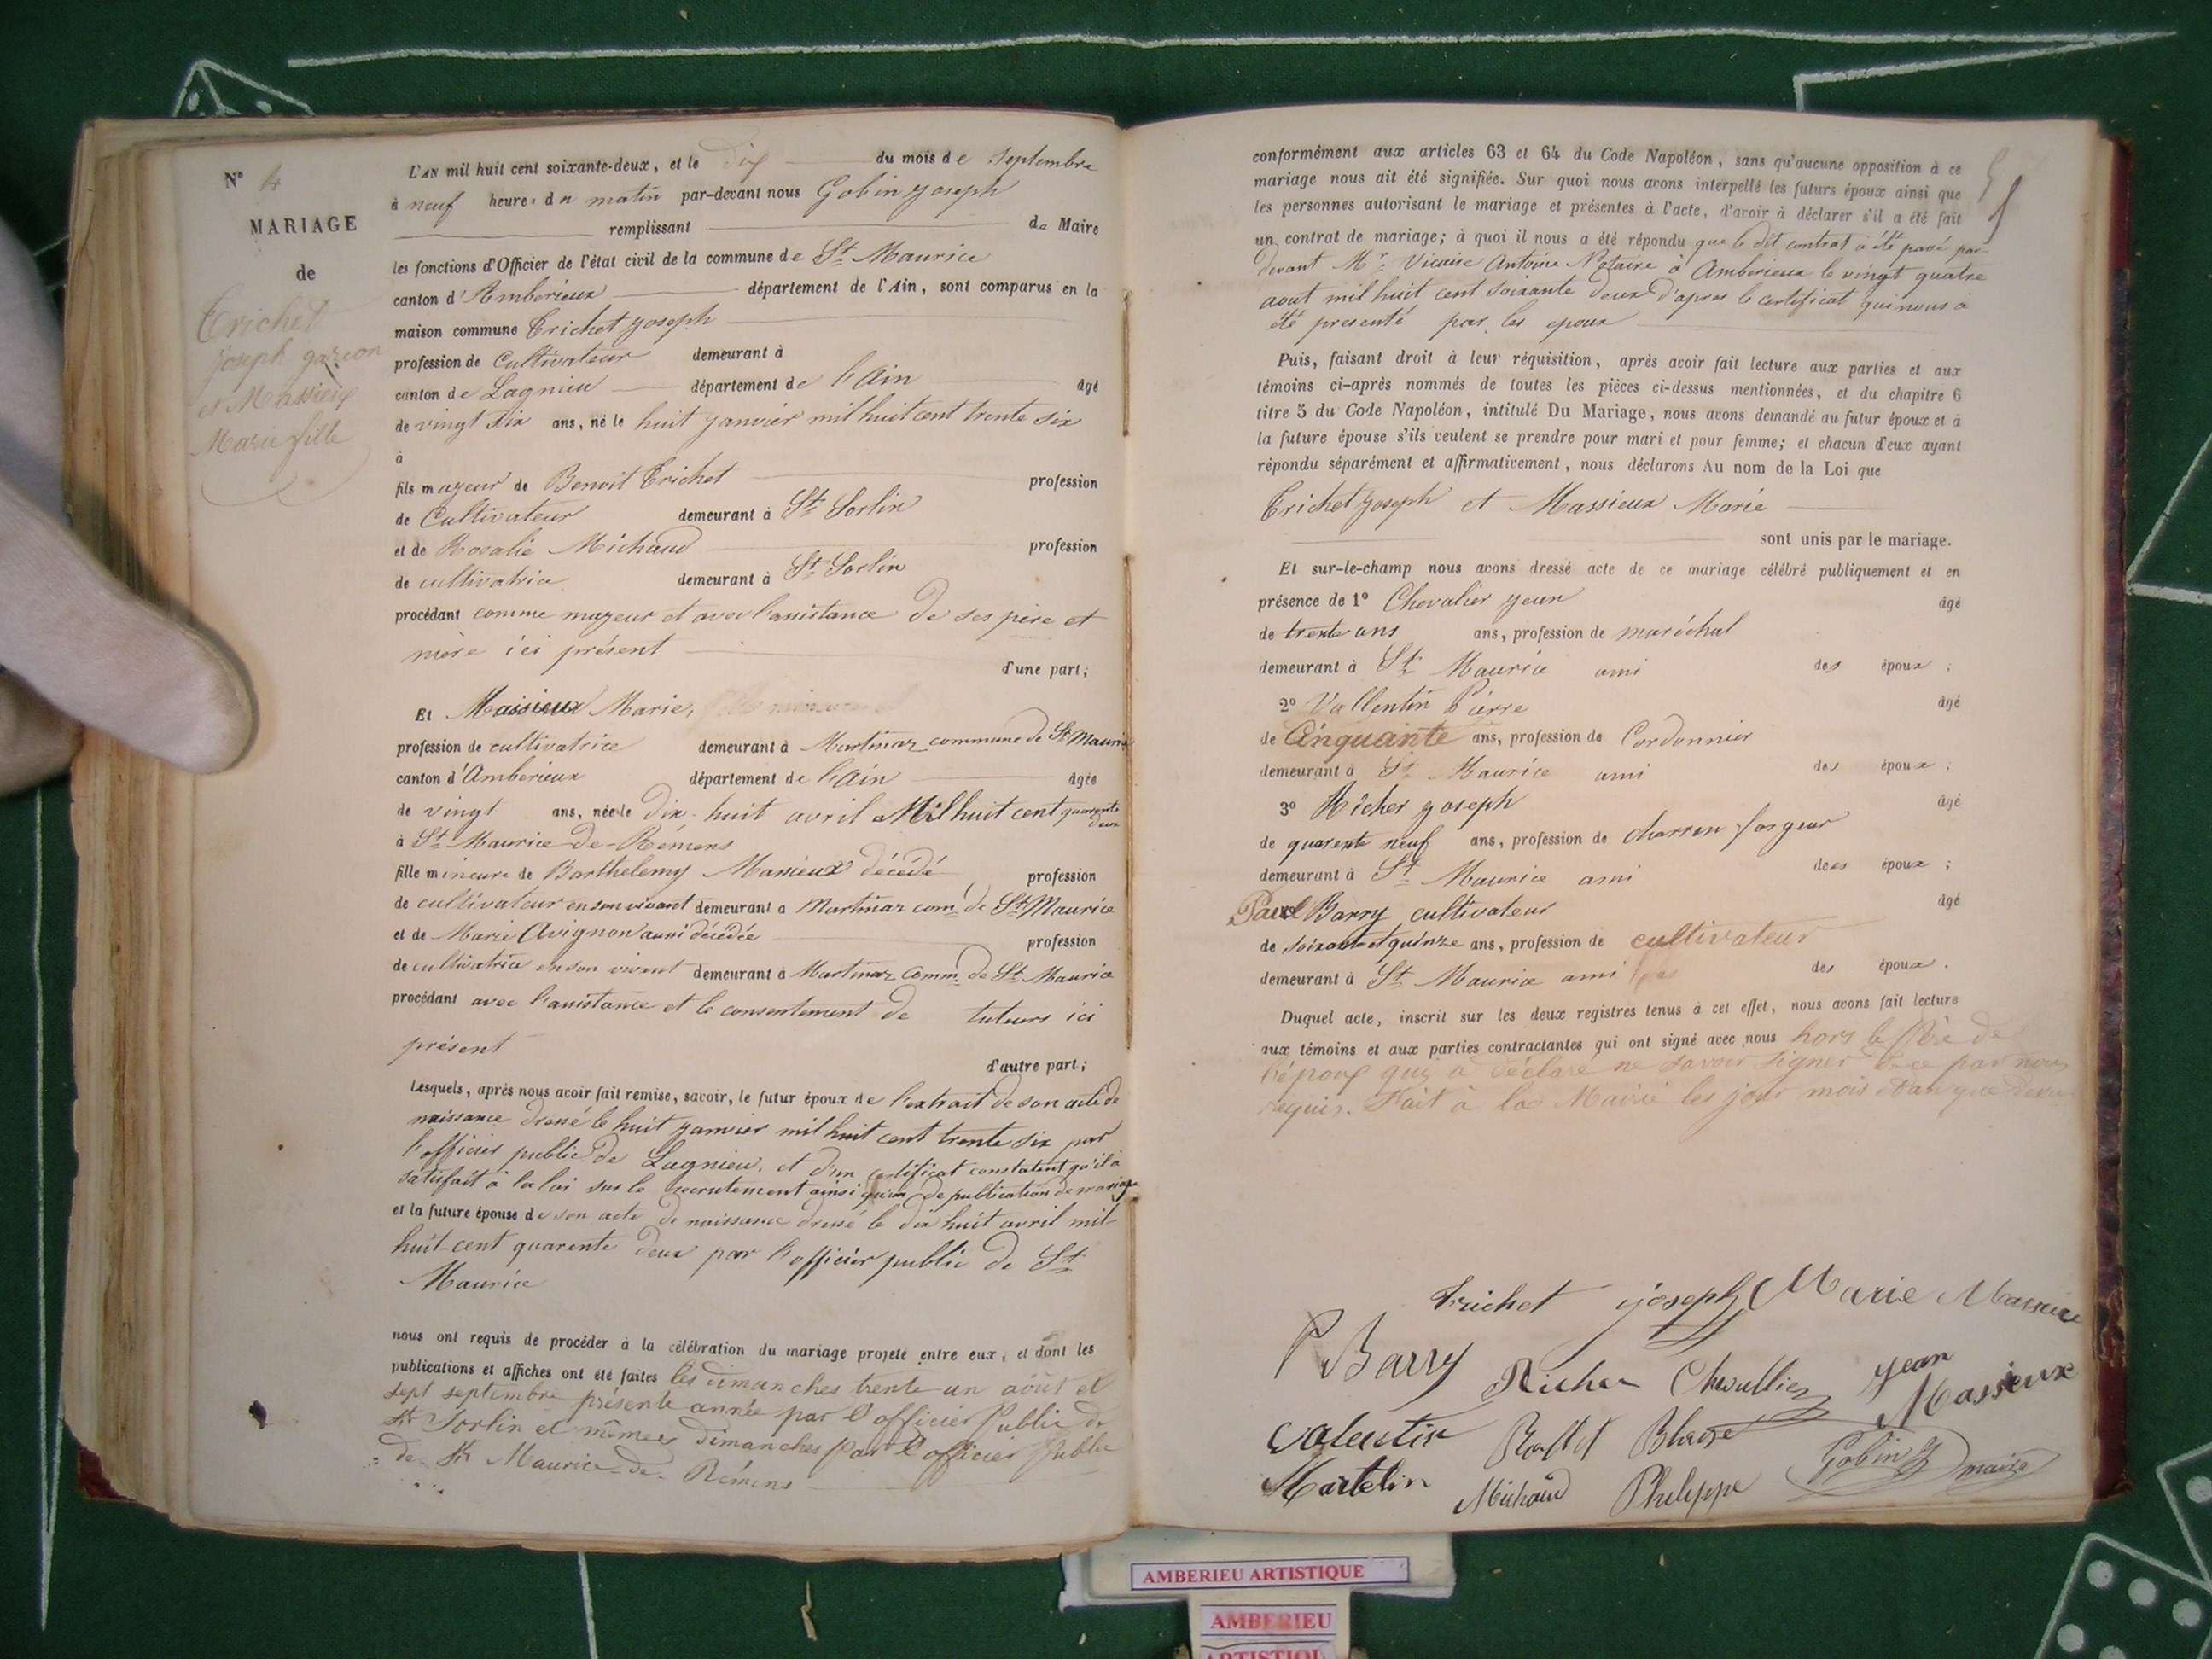 N° 4
MARIAGE
de
Trichet
joseph garcon
et Massieux
Marie fille
L'AN mil huit cent soixante-deux, et le dix du mois de Septembre
à neuf heures du matin par-devant nous Gobin Joseph
remplissant de Maire
les fonctions d'Officier de l'état civil de la commune de St Maurice
canton d'Amberieux département de l'Ain, sont comparus en la
maison commune Trichet Joseph
profession de Cultivateur demeurant à
canton de Lagnieu département de l'Ain âgé
de vingt six ans, né le huit janvier mil huit cent trente six
à
fils mayeur de Benoit Trichet profession
de Cultivateur demeurant à St Sorlin
et de Rosalie Michaud profession
de cultivatrice demeurant à St Sorlin
procédant comme mayeur et avec l'assistance de ses père et
mère ici présent
d'une part;
Et Massieux Marie,
profession de cultivatrice demeurant à Martinaz commune de St Maurice
canton d'Amberieux département de l'Ain âgée
de vingt ans, née le dix-huit avril Mil huit cent quarente deux
à St Maurice-De-Rémens
fille mineure de Barthelemy Massieux décédé profession
de cultivateur en son vivant demeurant a Martinaz com. de St Maurice
et de Marie Avignon aussi décédée profession
de cultivatrice en son vivant demeurant à Martinaz Comm. de St Maurice
procédant avec l'assistance et le consentement de tuteurs ici
présent
d'autre part;
Lesquels, après nous avoir fait remise, savoir, le futur époux de l'extrait de son acte de
naissance dressé le huit janvier mil huit cent trente six par
l'officier public de Lagnieu, et d'un certificat constatent qu'il a
satisfait à la loi sur le recrutement ainsi qu'un de publication de mariage
et la future épouse de son acte de naissance dressé le dix huit avril mil
huit-cent quarente deux par l'officier public de St
Maurice
nous ont requis de procéder à la célébration du mariage projeté entre eux, et dont les
publications et affiches ont été faites les dimanches trente un août et
sept septembre présente année par l'officier Public de
St Sorlin et mêmes dimanches par l'officier Public
de St Maurice-de-Rémens
conformément aux articles 63 et 64 du Code Napoléon, sans qu'aucune opposition à ce
mariage nous ait été signifiée. Sur quoi nous avons interpellé les futurs époux ainsi que
les personnes autorisant le mariage et présentes à l'acte, d'avoir à déclarer s'il a été fait
un contrat de mariage; à quoi il nous a été répondu que le dit contrat a été passé par
devant Mr Vicaire Antoine Notaire à Amberieux le vingt quatre
aout mil huit cent soixante deux d'apres le certificat qui nous a
été presenté par les epoux
Puis, faisant droit à leur réquisition, après avoir fait lecture aux parties et aux
témoins ci-après nommés de toutes les pièces ci-dessus mentionnées, et du chapitre 6
titre 5 du Code Napoléon, intitulé Du Mariage, nous avons demandé au futur époux et à
la future épouse s'ils veulent se prendre pour mari et pour femme; et chacun d'eux ayant
répondu séparément et affirmativement, nous déclarons Au nom de la Loi que
Trichet Joseph et Massieux Marie
sont unis par le mariage.
Et sur-le-champ nous avons dressé acte de ce mariage célébré publiquement et en
présence de 1° Chevalier jean âgé
de trente ans ans, profession de maréchal
demeurant à St Maurice ami des époux;
2° Vallentin Pierre âgé
de Cinquante ans, profession de Cordonnier
demeurant à St Maurice ami des époux;
3° Richer joseph âgé
de quarente neuf ans, profession de charron forgeur
demeurant à St Maurice ami des époux;
Paul Barry cultivateur âgé
de soixante et quinze ans, profession de cultivateur
demeurant à St Maurice ami des époux.
Duquel acte, inscrit sur les deux registres tenus à cet effet, nous avons fait lecture
aux témoins et aux parties contractantes qui ont signé avec nous hors le Père de
l'époux qui a déclaré ne savoir signer de ce par nous
requis. Fait à la Mairie les jour mois et an que dessus
Trichet joseph Marie Massieux
P Barry Richer Chevallier jean
Massieux
Valentin Blaise
Martelin Michaud Philippe Gobin J maire
AMBERIEU ARTISTIQUE
AMBERIEU
ARTISTIQUE